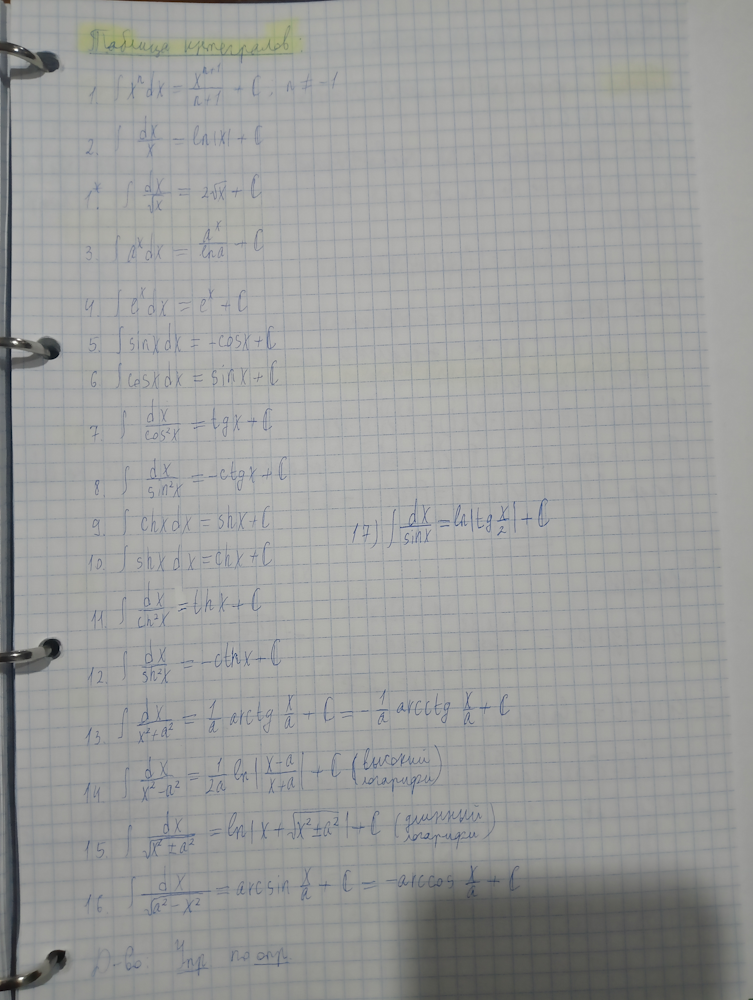 Таблица интегралов:
1. ∫ xⁿdx = xⁿ⁺¹/(n+1) + C, n ≠ -1
2. ∫ dx/x = ln|x| + C
1*. ∫ dx/√x = 2√x + C
3. ∫ aˣdx = aˣ/lna + C
4. ∫ eˣdx = eˣ + C
5. ∫ sinxdx = -cosx + C
6 ∫ cosxdx = sinx + C
7. ∫ dx/cos²x = tgx + C
8. ∫ dx/sin²x = -ctgx + C
9. ∫ chxdx = shx + C
17) ∫ dx/sinx = ln|tg x/2| + C
10. ∫ shxdx = chx + C
11. ∫ dx/ch²x = thx + C
12. ∫ dx/sh²x = -cthx + C
13. ∫ dx/(x²+a²) = 1/a arctg x/a + C = -1/a arcctg x/a + C
14. ∫ dx/(x²-a²) = 1/2a ln|(x-a)/(x+a)| + C (высокий логарифм)
15. ∫ dx/√(x²±a²) = ln|x + √(x²±a²)| + C (длинный логарифм)
16. ∫ dx/√(a²-x²) = arcsin x/a + C = -arccos x/a + C
Д-во: Упр по опр.